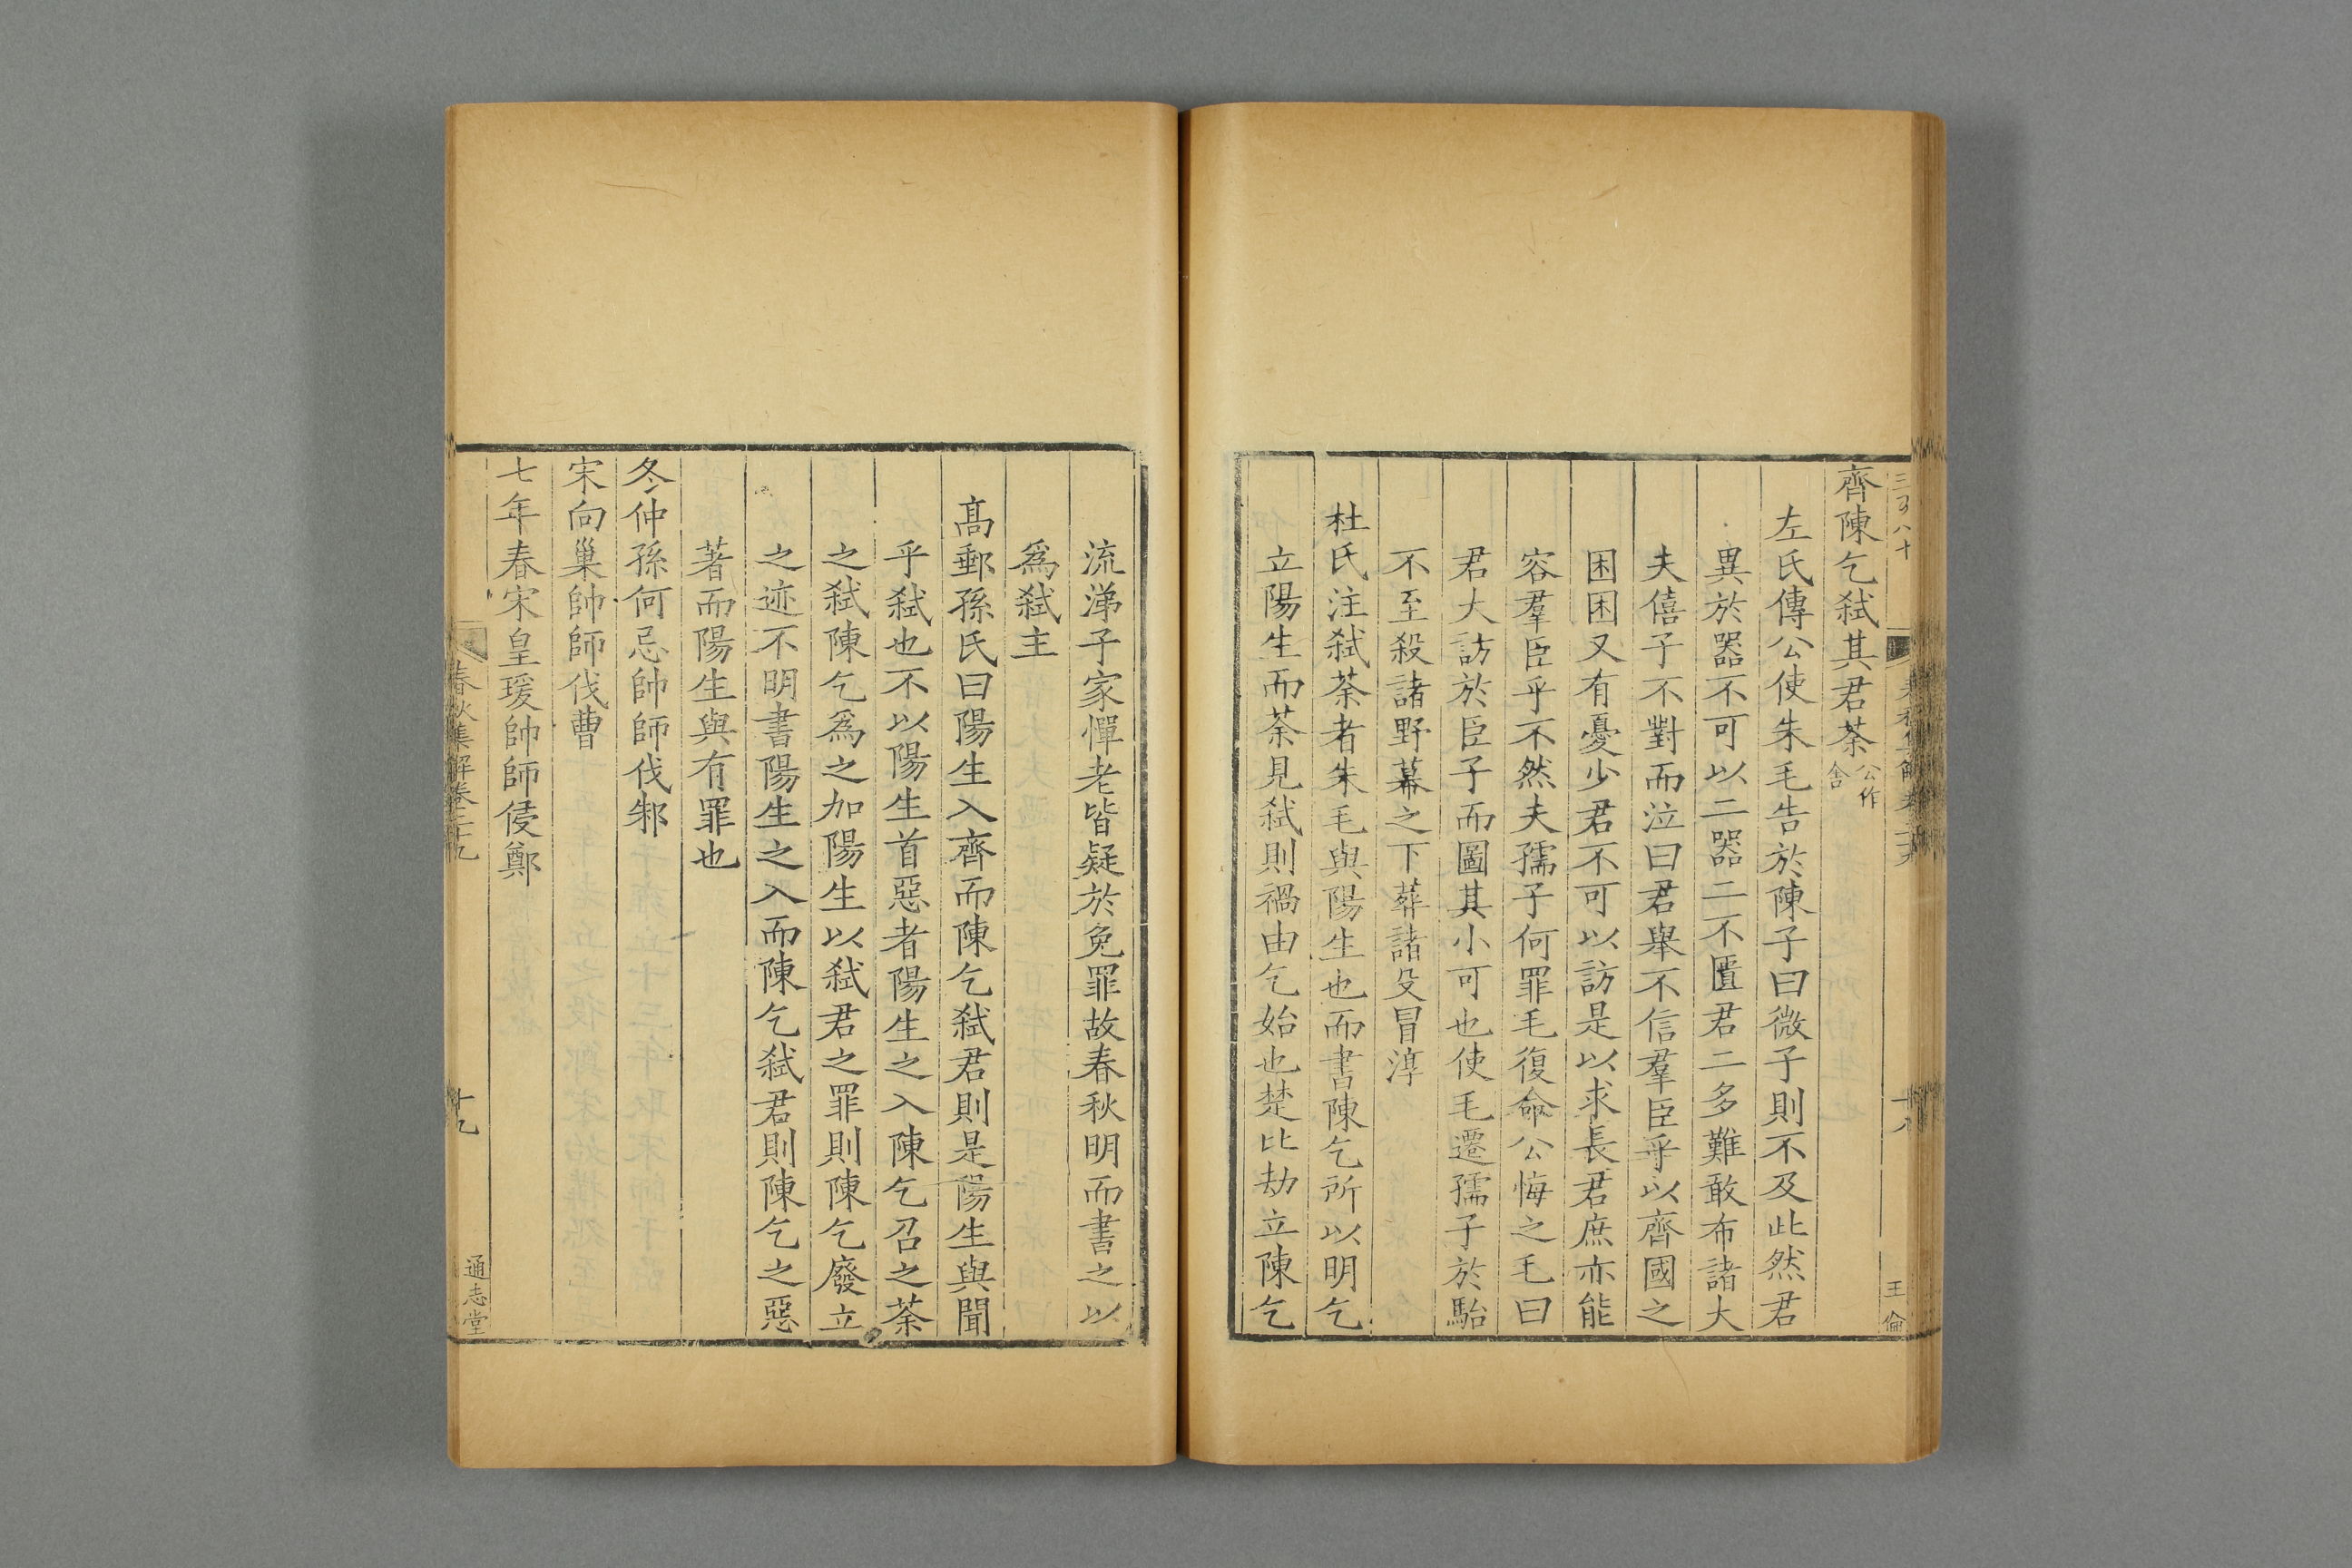 三百八十
春秋集解卷二十九
十八
王倫
齊陳乞弑其君荼公作舍
左氏傳公使朱毛告於陳子曰微子則不及此然君
異於器不可以二器二不匱君二多難敢布諸大
夫僖子不對而泣曰君舉不信羣臣乎以齊國之
困困又有憂少君不可以訪是以求長君庶亦能
容羣臣乎不然夫孺子何罪毛復命公悔之毛曰
君大訪於臣子而圖其小可也使毛遷孺子於駘
不至殺諸野幕之下葬諸殳冒淳
杜氏注弑荼者朱毛與陽生也而書陳乞所以明乞
立陽生而荼見弑則禍由乞始也楚比劫立陳乞
流涕子家憚老皆疑於免罪故春秋明而書之以
爲弑主
髙郵孫氏曰陽生入齊而陳乞弑君則是陽生與聞
乎弑也不以陽生首惡者陽生之入陳乞召之荼
之弑陳乞爲之加陽生以弑君之罪則陳乞廢立
之迹不明書陽生之入而陳乞弑君則陳乞之惡
著而陽生與有罪也
冬仲孫何忌帥師伐邾
宋向巢帥師伐曹
七年春宋皇瑗帥師侵鄭
春秋集解卷二十九
十九
通志堂